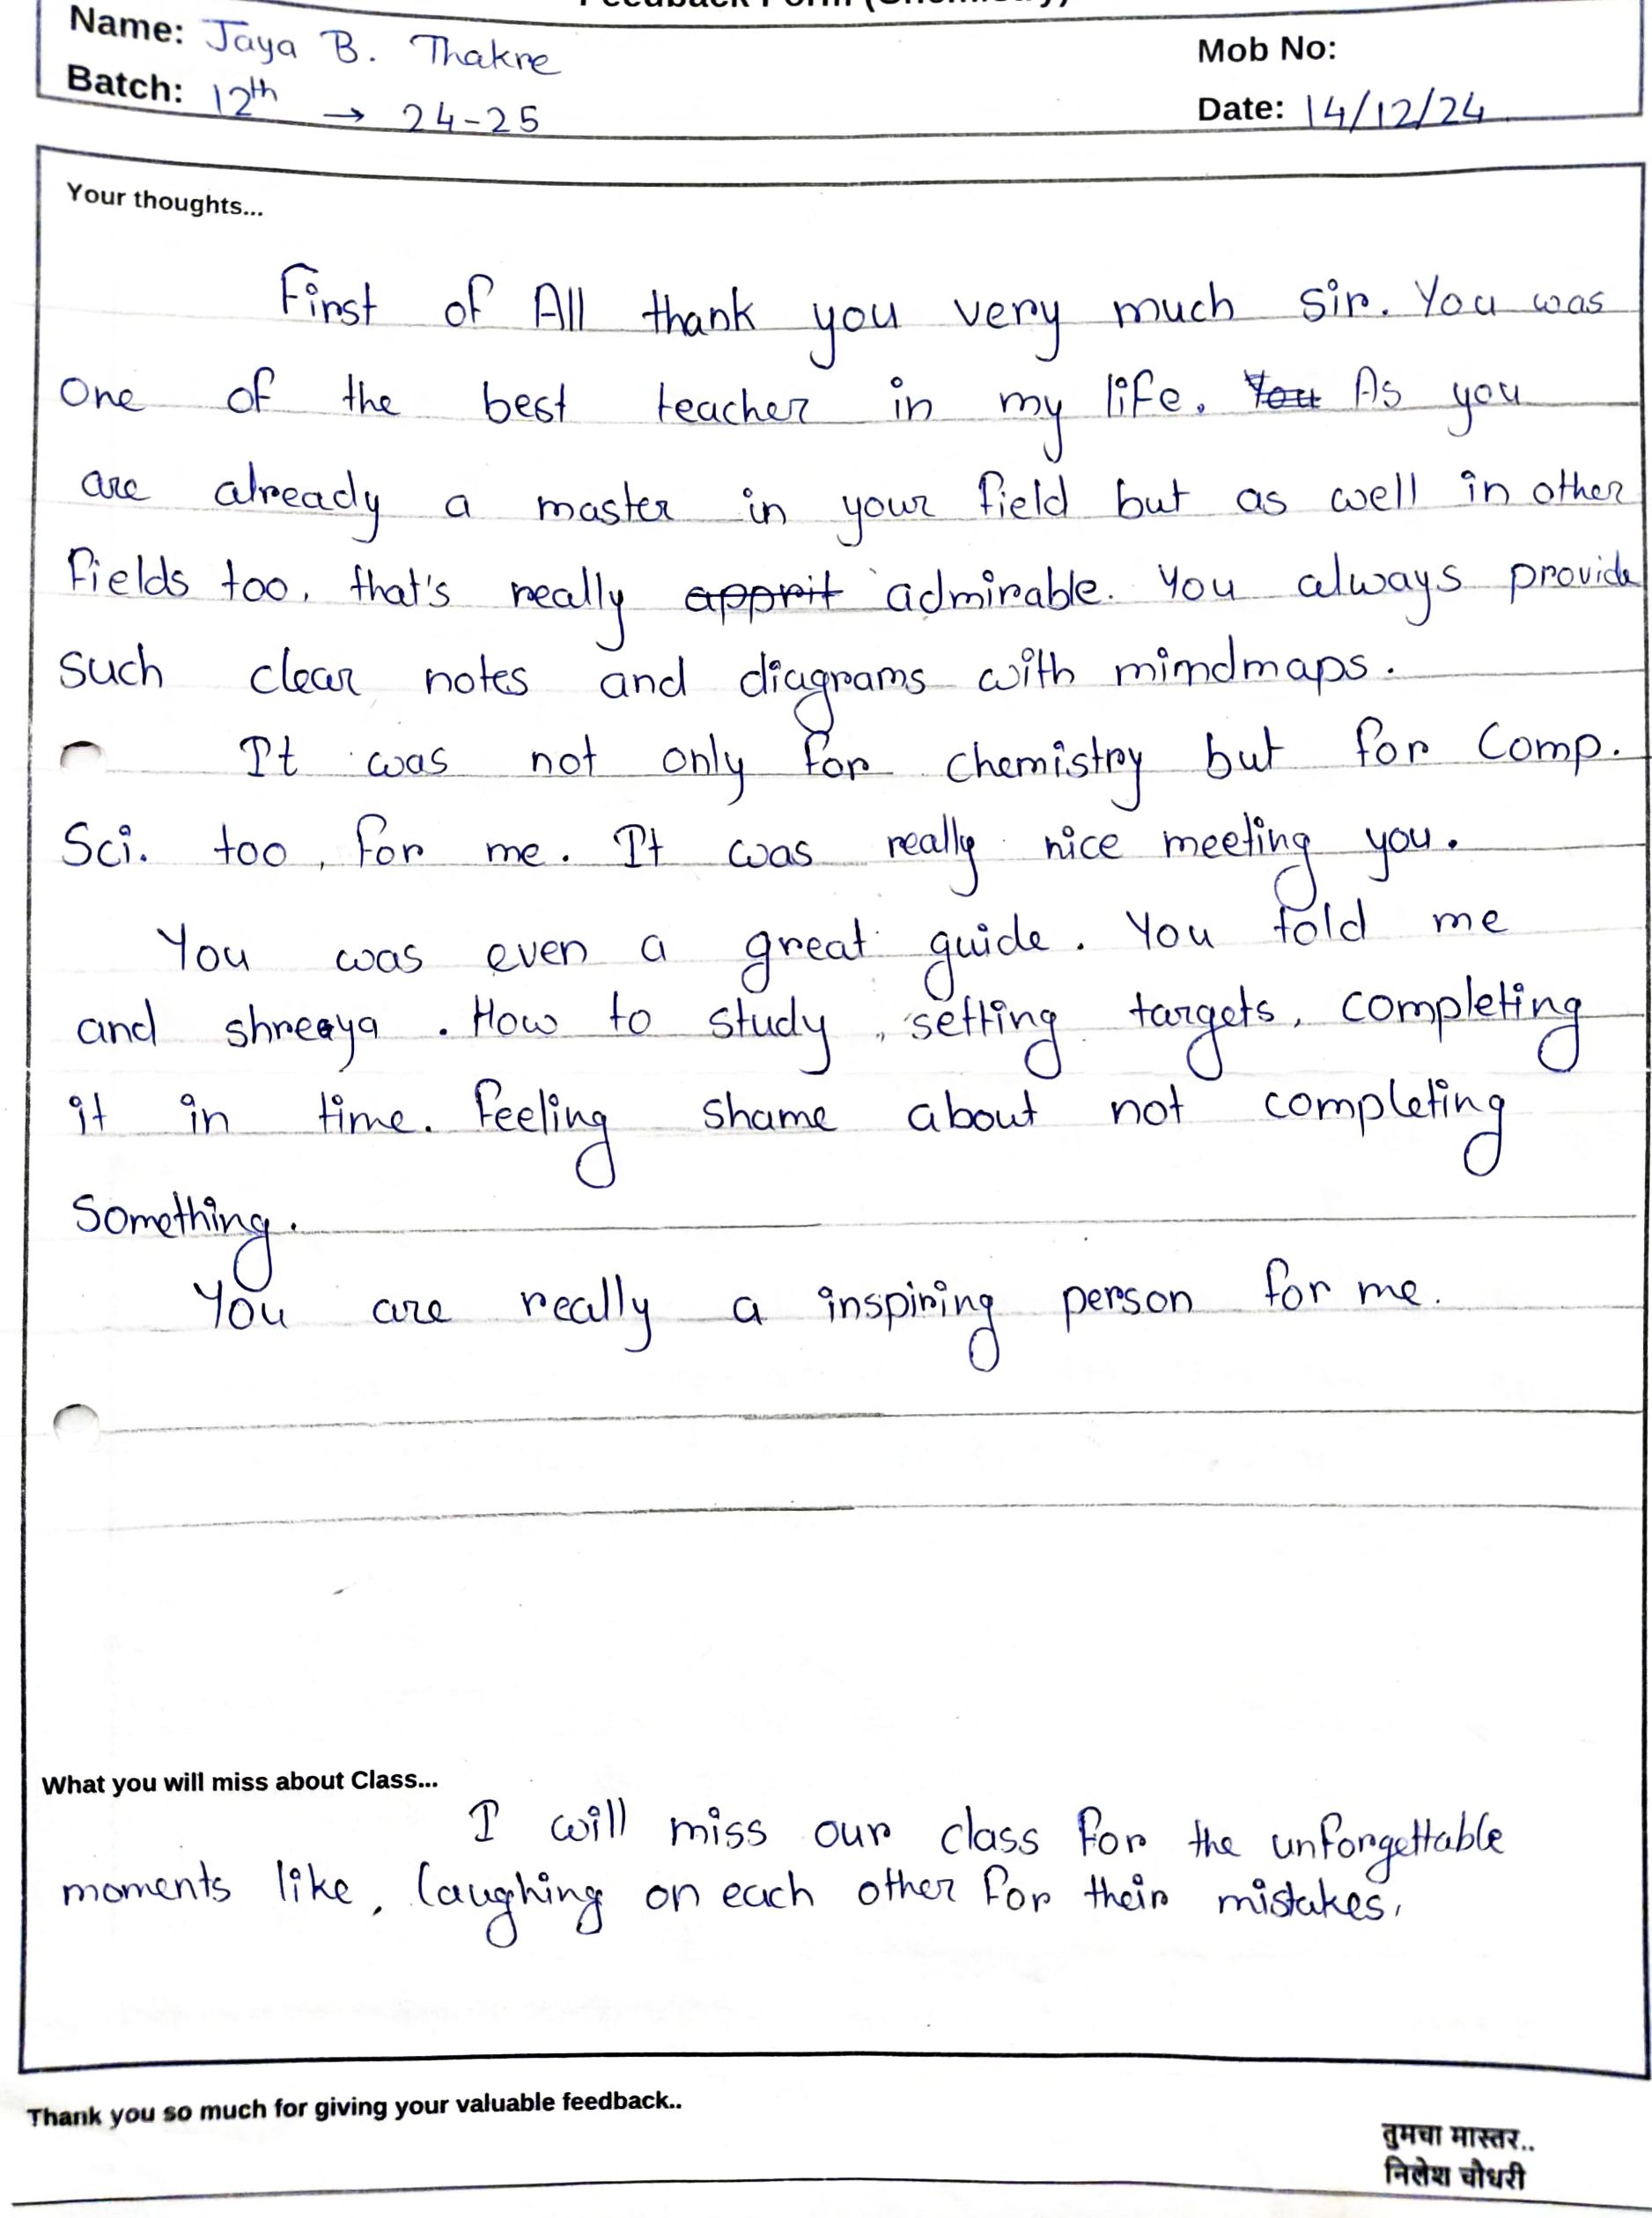 Feedback Form (Chemistry)
Name: Jaya B. Thakre
Mob No:
Batch: 12th → 24-25
Date: 14/12/24
Your thoughts...
First of All thank you very much sir. You was
one of the best teacher in my life. You As you
are already a master in your field but as well in other
fields too, that's really apprit admirable. You always provide
such clear notes and diagrams with mimdmaps.
It was not only for chemistry but for Comp.
Sci. too, for me. It was really nice meeting you.
You was even a great guide. You told me
and shreeya . How to study , setting targets, completing
it in time. Feeling shame about not completing
Something.
You are really a inspiring person for me.
What you will miss about Class...
I will miss our class for the unforgettable
moments like, laughing on each other for their mistakes,
Thank you so much for giving your valuable feedback..
तुमचा मास्तर..
निलेश चौधरी